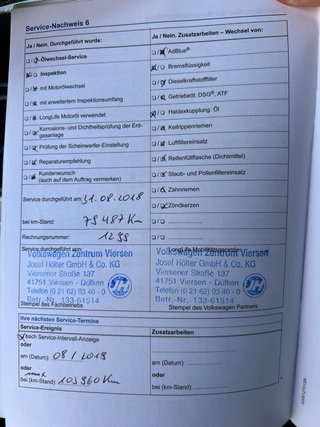 Service-Nachweis 6
Ja / Nein. Durchgeführt wurde:
Ja / Nein. Zusatzarbeiten – Wechsel von:
Ölwechsel-Service
AdBlue®
Inspektion
Bremsflüssigkeit
mit Motorölwechsel
Dieselkraftstofffilter
mit erweitertem Inspektionsumfang
Getriebeöl: DSG®, ATF
LongLife Motoröl verwendet
Haldexkupplung: Öl
Korrosions- und Dichtheitsprüfung der Erdgasanlage
Keilrippenriemen
Luftfiltereinsatz
Prüfung der Scheinwerfer-Einstellung
Reifenfüllflasche (Dichtmittel)
Reparaturempfehlung
Staub- und Pollenfiltereinsatz
Kundenwunsch
(auch auf dem Auftrag vermerken)
Zahnriemen
Service durchgeführt am: 31.08.2018
Zündkerzen
bei km-Stand: 79 487 Km
Rechnungsnummer: 1299
Service durchgeführt von:
LongLife Mobilitätsgarantie
Volkswagen Zentrum Viersen
Josef Hölter GmbH & Co. KG
Viersener Straße 137
41751 Viersen - Dülken
Telefon (0 21 62) 93 40 - 0
Betr.-Nr. 133-61514
Stempel des Fachbetriebs
Volkswagen Zentrum Viersen
Josef Hölter GmbH & Co. KG
Viersener Straße 137
41751 Viersen - Dülken
Telefon (0 21 62) 93 40 - 0
Betr.-Nr. 133-61514
Stempel des Volkswagen Partners
Ihre nächsten Service-Termine
Service-Ereignis
Zusatzarbeiten
nach Service-Intervall-Anzeige
oder
am (Datum): 08/2019
am (Datum):
oder
oder
bei (km-Stand): 103960 Km
bei (km-Stand):